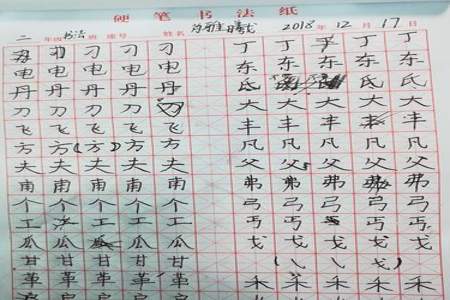 硬笔书法纸
二 年级 书法 班 座号 姓名 2018年12月17日
刁 刁 刁 刁 丁 丁 丁 丁
电 电 电 电 电 东 东 东 东 东
丹 丹 丹 丹 丹 氏 氏 氏 氏
刀 刀 刀 刀 大 大 大 大 大
飞 飞 飞 飞 飞 丰 丰 丰 丰
方 方 (方) 方 方 凡 凡 凡 凡 凡
夫 夫 夫 夫 夫 父 父 父 父 父
甫 甫 甫 甫 甫 弗 弗 弗 弗
个 个 个 个 个 弓 弓 弓 弓
工 工 工 工 丐 丐 丐 丐
瓜 瓜 瓜 瓜 瓜 戈 戈 戈 戈 戈
甘 甘 甘 甘 甘
革 革 革 革 革 禾 禾 禾 禾